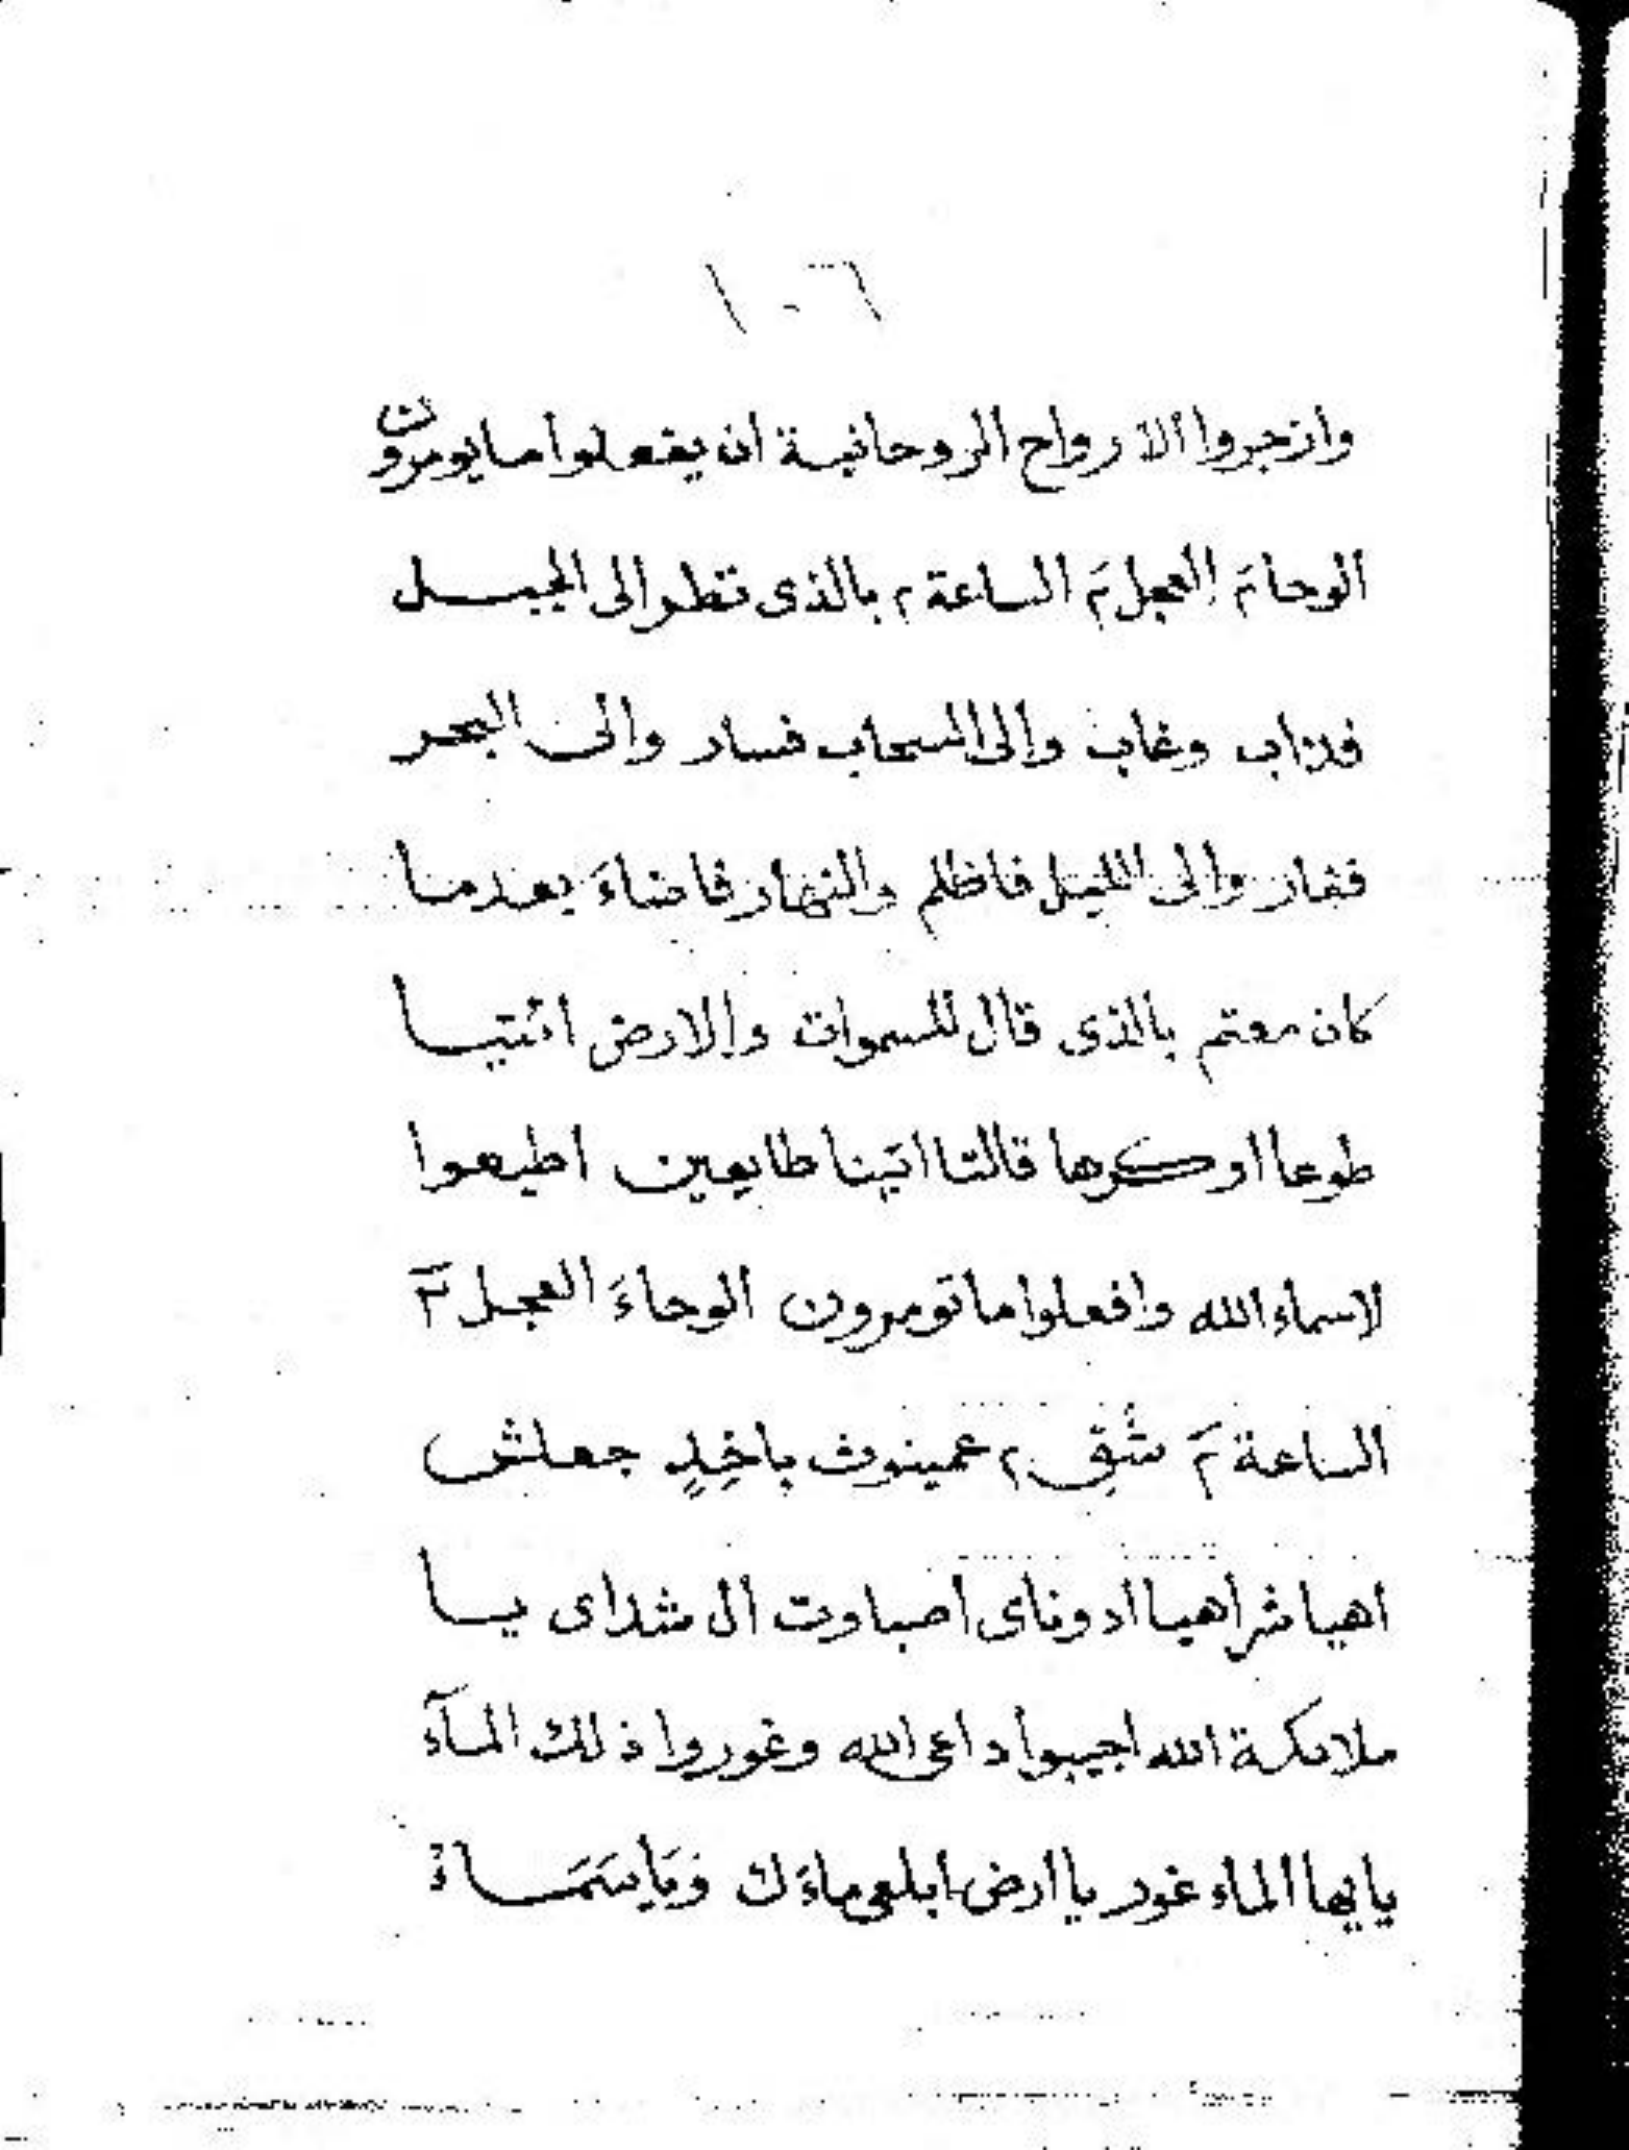 ١٠٦
وازجروا الارواح الروحانية ان يفعلوا ما يومرون
الوحا٢ العجل٢ الساعة٢ بالذى نظر الى الجبل
فذاب وغاب والى السحاب فسار والى البحر
فغار والى الليل فاظلم والنهار فاضاءَ بعدما
كان معتم بالذى قال للسموات والارض ائتيا
طوعا او كرها قالتا اتينا طايعين اطيعوا
لاسماء الله وافعلوا ما تومرون الوحاءَ العجل ٢
الساعة ٢ شقِ ٢ عمينوث باخِلٍ جعلش
اهيا شراهيا ادوناى اصباوت ال شداى يا
ملائكة الله اجيبوا داعى الله وغوروا ذلك المآء
يايها الماء غور يا ارض ابلعى ماءَك وَيَاسَمَاءُ